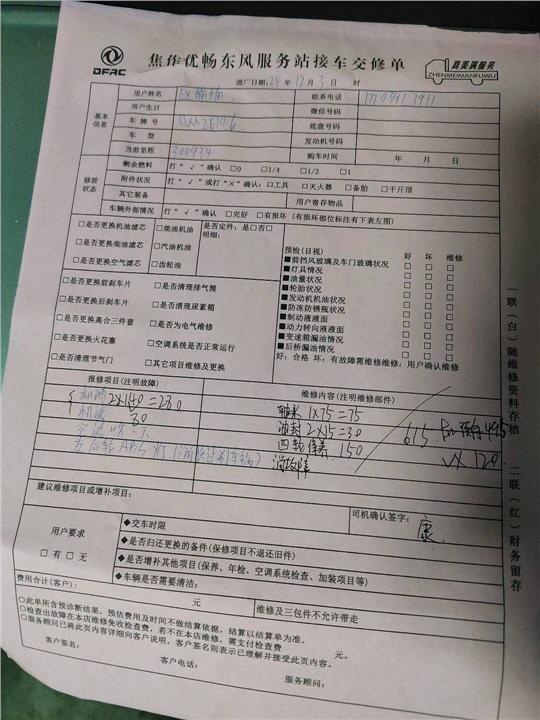 DFAC
焦作优畅东风服务站接车交修单
真美满服务
ZHENMEIMANFUWU
进厂日期:24年12月3日 时
基本信息
用户姓名 联系电话
用户生日 微信号码
车牌号 底盘号码
车型 发动机号码
当前里程 300934 购车时间 年 月 日
修前状态
剩余燃料 打“√”确认 □0 □1/4 □1/2 □1
附件状况 打“√”或打“×”确认:□工具 □灭火器 □备胎 □千斤顶
其它装备 用户寄存物品
车辆外部情况 打“√”确认 □完好 □有损坏(有损坏部位标注有下表左图)
□是否更换机油滤芯 □柴油机油 是否定件:是□否□
明细:
□是否更换柴油滤芯 □汽油机油
□是否更换空气滤芯 □齿轮油
□是否更换前刹车片 □是否清理排气筒
□是否更换后刹车片 □是否清理尿素箱
□是否更换离合三件套 □是否为电气维修
□是否更换火花塞 □空调系统是否正常运行
□是否清理节气门 □其它项目维修及更换
预检(目视) 好 坏 维修
■前挡风玻璃及车门玻璃状况 □ □ □
■灯具情况 □ □ □
■油量状况 □ □ □
■轮胎状况 □ □ □
■发动机机油状况 □ □ □
■防冻防锈瓶状况 □ □ □
■制动液液面 □ □ □
■动力转向液液面 □ □ □
■变速箱漏油情况 □ □ □
■后桥漏油情况 □ □ □
好:合格 坏:有故障需维修维修:用户确认维修
报修项目(注明故障) 维修内容(注明维修部件)
机油 2×140=280
机滤 80
左后轮ABS灯
轴承 1×75=75
油封 2×15=30
四轮保养 150
消故障
615
495
120
建议维修项目或增补项目:
司机确认签字:
康
用户要求
□有 □无
◆交车时限
◆是否归还更换的备件(保修项目不退还旧件)
◆是否增补其他项目(保养、年检、空调系统检查、加装项目等)
◆车辆是否需要清洁:
费用合计(客户): 元 维修及三包件不允许带走
○此单所含预诊断结果,预估费用及时间不做结算依据,结算以结算单为准。
○检查出故障在本店维修免收检查费,若不在本店维修,需支付检查费 元。
○服务顾问已将此页内容详细向客户说明,客户签名则表示已理解并接受此页内容。
客户签名: 客户电话: 服务顾问:
一联(白)随维修资料存档 二联(红)财务留存